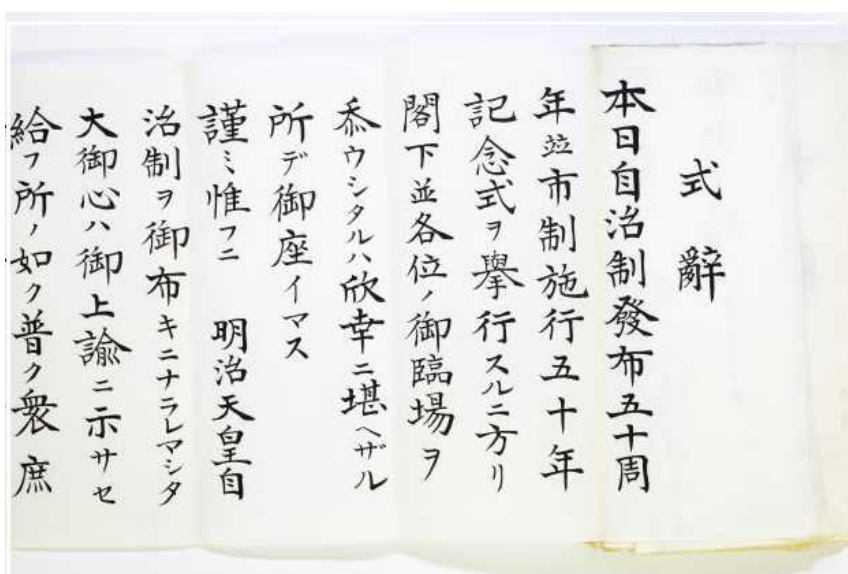 式辭
本日自治制發布五十周
年竝市制施行五十年
記念式ヲ擧行スルニ方リ
閣下並各位ノ御臨場ヲ
忝ウシタルハ欣幸ニ堪ヘザル
所デ御座イマス
謹ミ惟フニ 明治天皇自
治制ヲ御布キニナラレマシタ
大御心ハ御上諭ニ示サセ
給フ所ノ如ク普ク衆庶